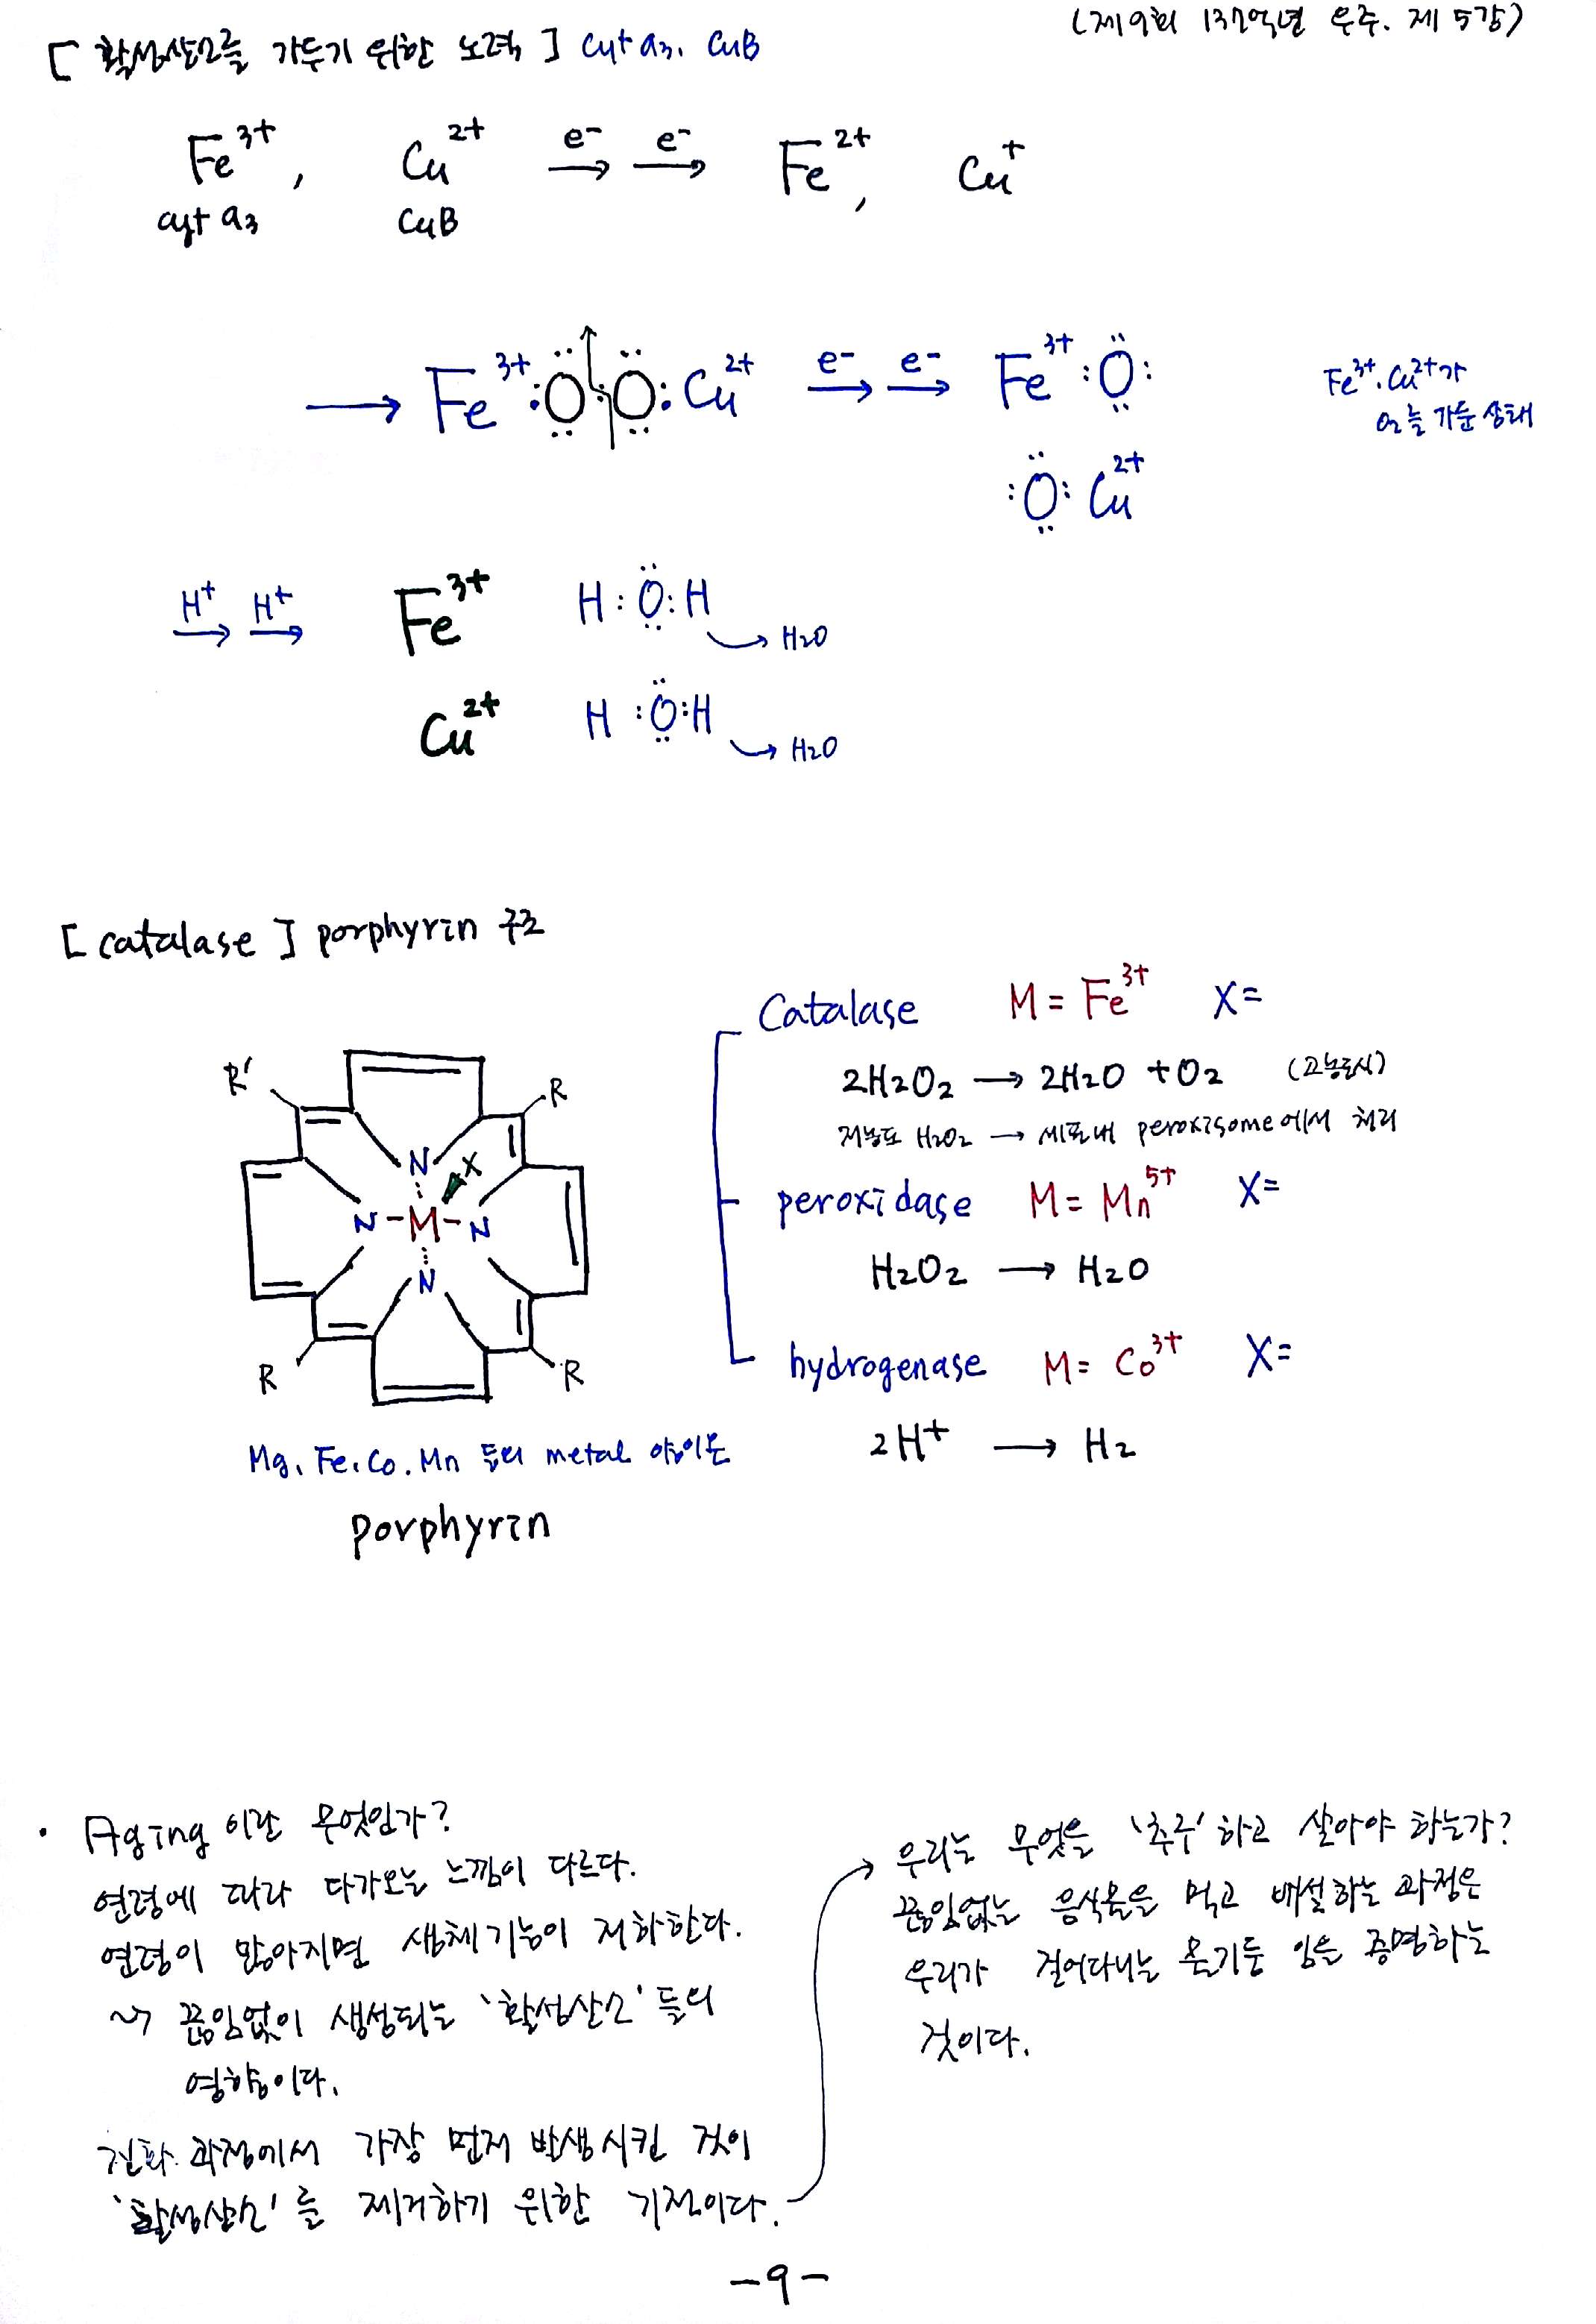 (제9회 137억년 우주. 제 5강)
[ 활성산소를 가두기 위한 노력 ] cyt a3. CuB
Fe3+, Cu2+ e- → e- → Fe2+, Cu+
cyt a3 CuB
→ Fe3+ :O:O: Cu2+ e- → e- → Fe3+ :O:
:O: Cu2+
Fe3+. Cu2+가
O2를 가둔 상태
H+ → H+ → Fe3+ H:O:H → H2O
Cu2+ H:O:H → H2O
[ catalase ] porphyrin 구조
R' R
N X
N-M-N
N
R R
Mg. Fe. Co. Mn 등의 metal 이온
porphyrin
Catalase M = Fe3+ X=
2H2O2 → 2H2O + O2 (고농도시)
저농도 H2O2 → 세포내 peroxisome에서 처리
peroxidase M = Mn5+ X=
H2O2 → H2O
hydrogenase M = Co3+ X=
2H+ → H2
· Aging 이란 무엇인가?
연령에 따라 다가오는 느낌이 다르다.
연령이 많아지면 생체기능이 저하한다.
~> 끊임없이 생성되는 '활성산소' 들의
영향이다.
진화 과정에서 가장 먼저 발생시킨 것이
'활성산소'를 제거하기 위한 기전이다.
→ 우리는 무엇을 '추구'하고 살아야 하는가?
끊임없는 음식물을 먹고 배설하는 과정은
우리가 걸어다니는 물기둥 임을 증명하는
것이다.
-9-